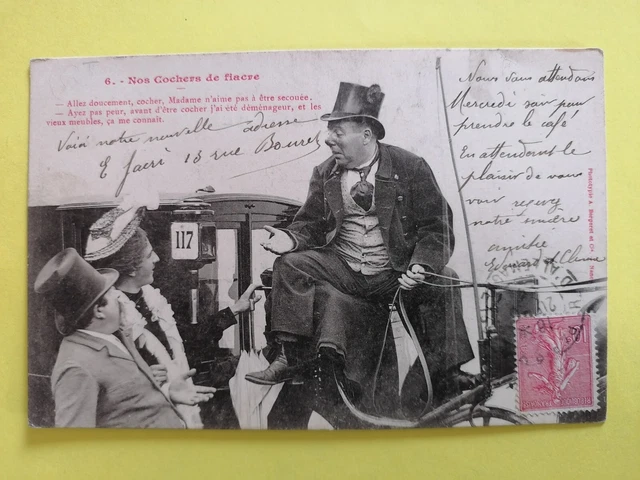 6. - Nos Cochers de fiacre
— Allez doucement, cocher, Madame n'aime pas à être secouée.
— Ayez pas peur, avant d'être cocher j'ai été déménageur, et les
vieux meubles, ça me connaît.
Voici notre nouvelle adresse
E Jacri 13 rue
117
Nous vous attendons
Mercredi soir pour
prendre le café
En attendant le
plaisir de vous
voir recevez
notre sincère
amitié
Phototypie A. Bergeret et Cie